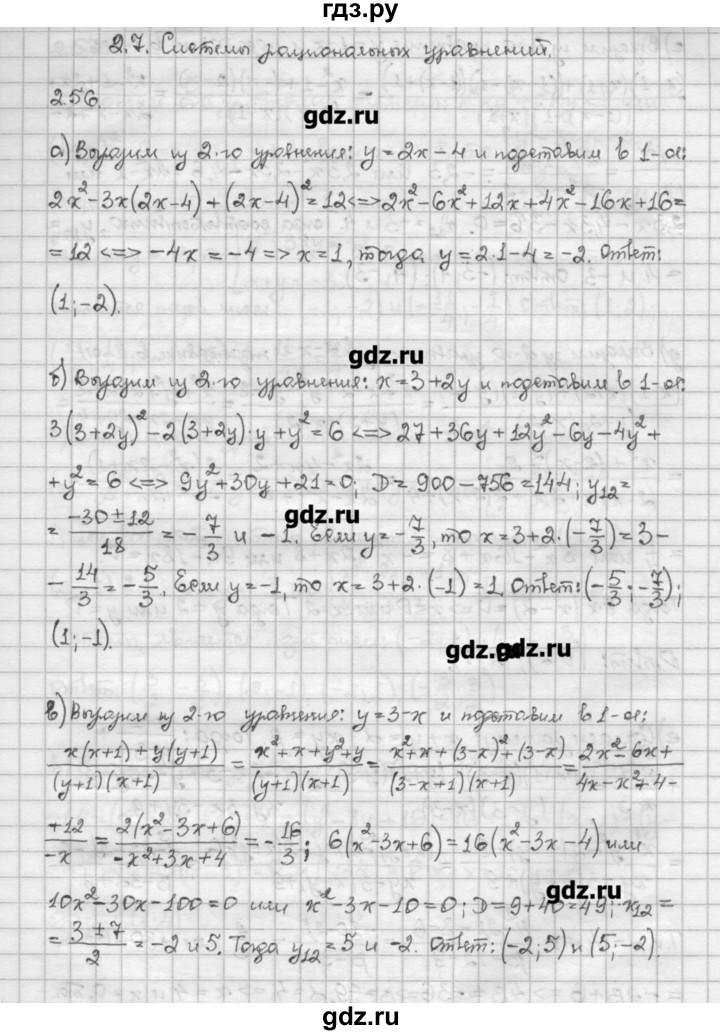 гдз.ру
2.7. Системы рациональных уравнений.
2.56.
gdz.ru
а) Выразим из 2-го уравнения: y = 2x - 4 и подставим в 1-ое:
2x² - 3x(2x-4) + (2x-4)² = 12 <=> 2x² - 6x² + 12x + 4x² - 16x + 16 =
= 12 <=> -4x = -4 => x = 1, тогда y = 2·1 - 4 = -2. Ответ:
(1; -2).
gdz.ru
б) Выразим из 2-го уравнения: x = 3 + 2y и подставим в 1-ое:
3(3+2y)² - 2(3+2y)·y + y² = 6 <=> 27 + 36y + 12y² - 6y - 4y² +
+ y² = 6 <=> 9y² + 30y + 21 = 0; D = 900 - 756 = 144; y₁₂ =
gdz.ru
= (-30 ± 12)/18 = -7/3 и -1. Если y = -7/3, то x = 3 + 2·(-7/3) = 3 -
- 14/3 = -5/3. Если y = -1, то x = 3 + 2·(-1) = 1. Ответ: (-5/3; -7/3);
(1; -1).
gdz.ru
в) Выразим из 2-го уравнения: y = 3 - x и подставим в 1-ое:
(x(x+1) + y(y+1))/((y+1)(x+1)) = (x² + x + y² + y)/((y+1)(x+1)) = (x² + x + (3-x)² + (3-x))/((3-x+1)(x+1)) = (2x² - 6x +)/(4x - x² + 4 -)
(+12)/(-x) = (2(x² - 3x + 6))/(-x² + 3x + 4) = -16/3; 6(x² - 3x + 6) = 16(x² - 3x - 4) или
gdz.ru
10x² - 30x - 100 = 0 или x² - 3x - 10 = 0; D = 9 + 40 = 49; x₁₂ =
= (3 ± 7)/2 = -2 и 5. Тогда y₁₂ = 5 и -2. Ответ: (-2; 5) и (5; -2).